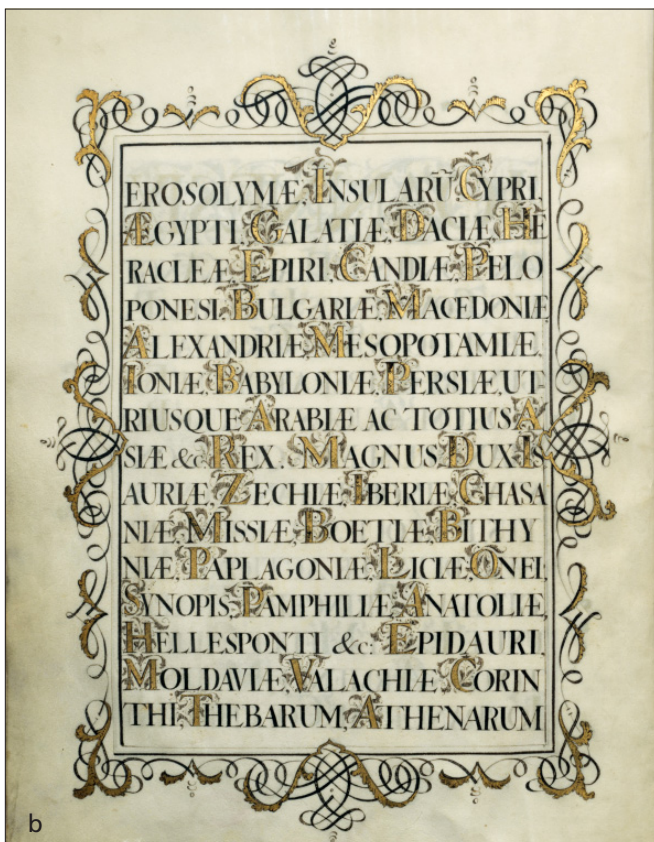 EROSOLYMÆ, INSULARŪ CYPRI,
ÆGYPTI, GALATIÆ, DACIÆ, HE
RACLEÆ EPIRI, CANDIÆ, PELO
PONESI, BULGARIÆ, MACEDONIÆ
ALEXANDRIÆ, MESOPOTAMIÆ,
IONIÆ, BABYLONIÆ, PERSIÆ, UT-
RIUSQUE ARABIÆ AC TOTIUS A
SIÆ &c. REX. MAGNUS DUX IS
AURIÆ, ZECHIÆ, IBERIÆ, CHASA
NIÆ, MISSIÆ, BOETIÆ, BITHY
NIÆ, PAPLAGONIÆ, LICIÆ, ONEI
SYNOPIS, PAMPHILIÆ, ANATOLIÆ,
HELLESPONTI &c: EPIDAURI,
MOLDAVIÆ, VALACHIÆ, CORIN
THI, THEBARUM, ATHENARUM
b